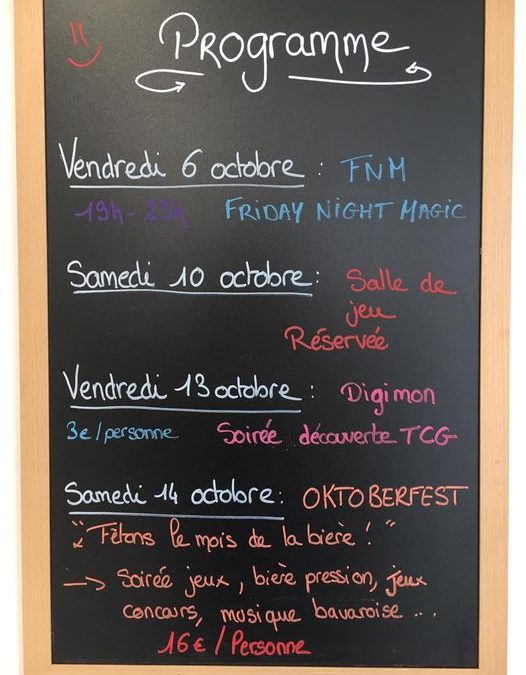 Programme
Vendredi 6 octobre : FNM
19h-23h FRIDAY NIGHT MAGIC
Samedi 10 octobre : Salle de
jeu
Réservée
Vendredi 13 octobre : Digimon
3€/personne Soirée découverte TCG
Samedi 14 octobre : OKTOBERFEST
"Fêtons le mois de la bière ! "
→ Soirée jeux, bière pression, jeux
concours, musique bavaroise ...
16€/Personne